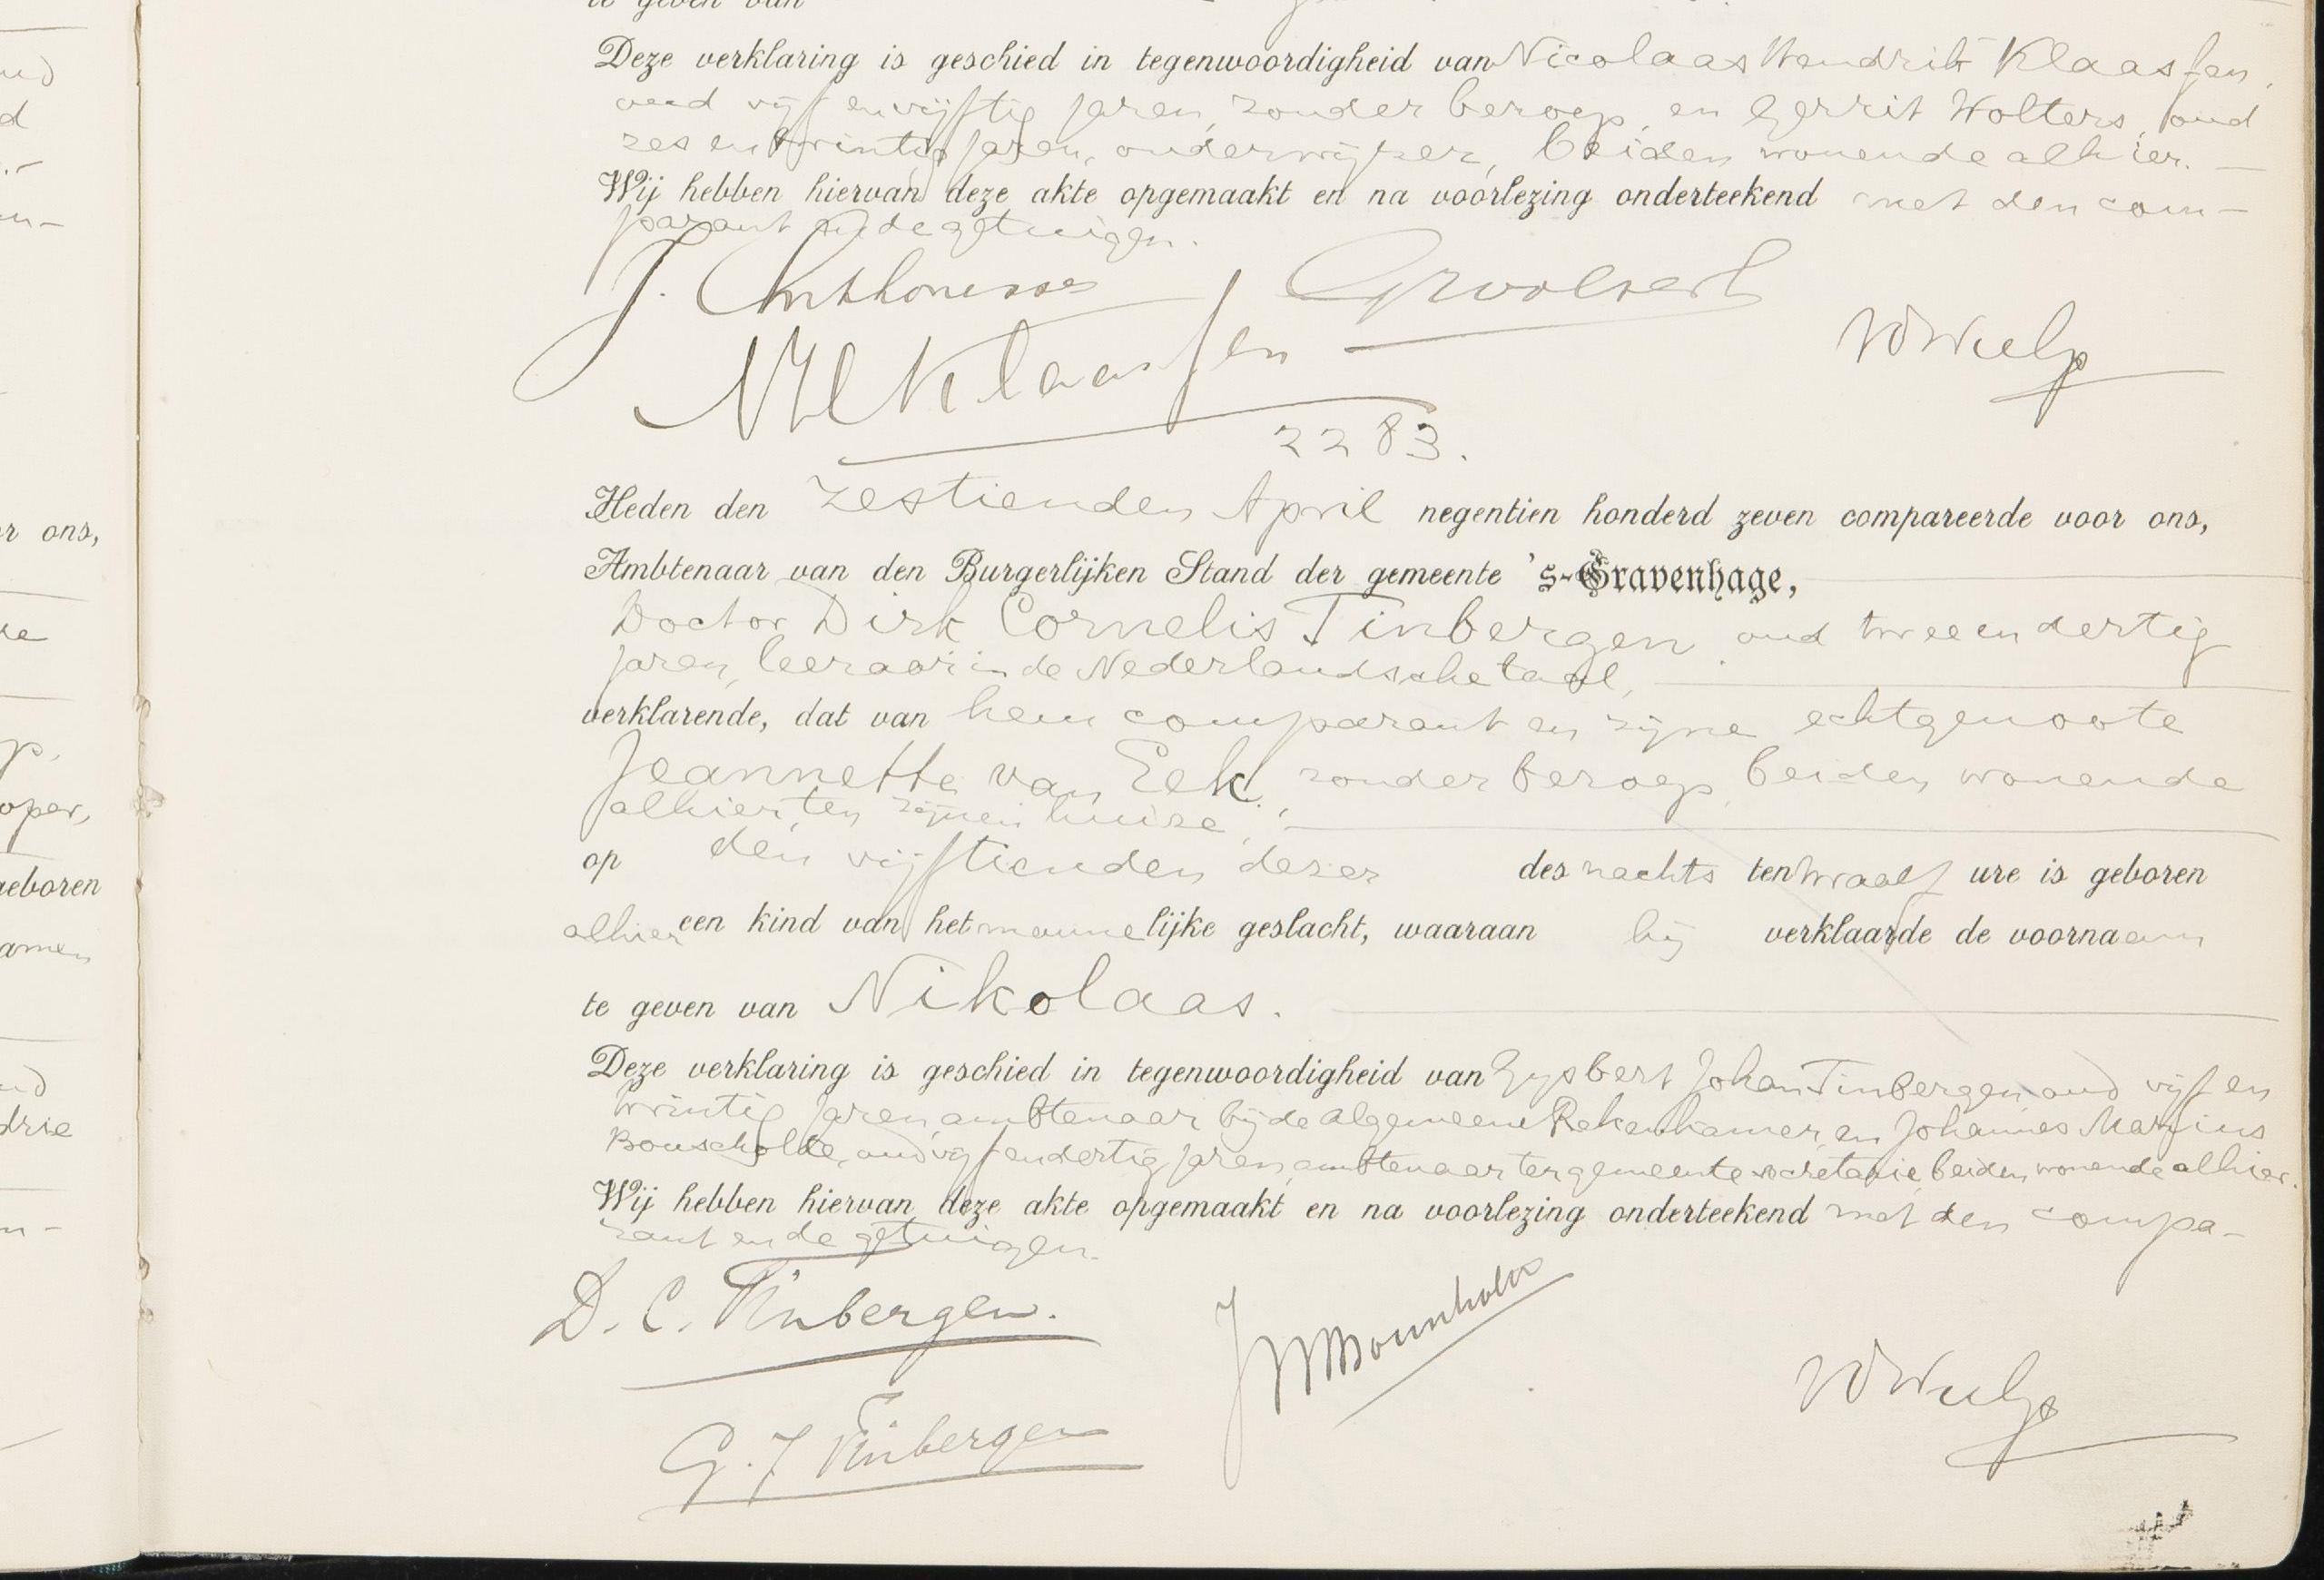 te geven van
Deze verklaring is geschied in tegenwoordigheid van Nicolaas Hendrik Klaassen,
oud vijf en vijftig jaren, zonder beroep, en Gerrit Wolters, oud
zes en twintig jaren, onderwijzer, beiden wonende alhier.
Wij hebben hiervan deze akte opgemaakt en na voorlezing onderteekend met den com-
parant en de getuigen.
J.
NH Klaassen
2283.
Heden den zestienden April negentien honderd zeven compareerde voor ons,
Ambtenaar van den Burgerlijken Stand der gemeente 's-Gravenhage,
Doctor Dirk Cornelis Tinbergen, oud twee en dertig
jaren, leeraar in de Nederlandsche taal,
verklarende, dat van hem comparant en zijne echtgenoote
Jeannette van Eek, zonder beroep, beiden wonende
alhier, ten zijnen huize,
op den vijftienden dezer des nachts ten twaalf ure is geboren
alhier een kind van het mannelijke geslacht, waaraan hij verklaarde de voornaam
te geven van Nikolaas.
Deze verklaring is geschied in tegenwoordigheid van Gysbert Johan Tinbergen, oud vijf en
twintig jaren, ambtenaar bij de Algemeene Rekenkamer, en Johannes Martinus
oud vijf en dertig jaren, ambtenaar ter gemeente secretarie, beiden wonende alhier.
Wij hebben hiervan deze akte opgemaakt en na voorlezing onderteekend met den compa-
rant en de getuigen.
D. C. Tinbergen.
G. J Tinbergen
r ons,
oper,
geboren
amen
drie